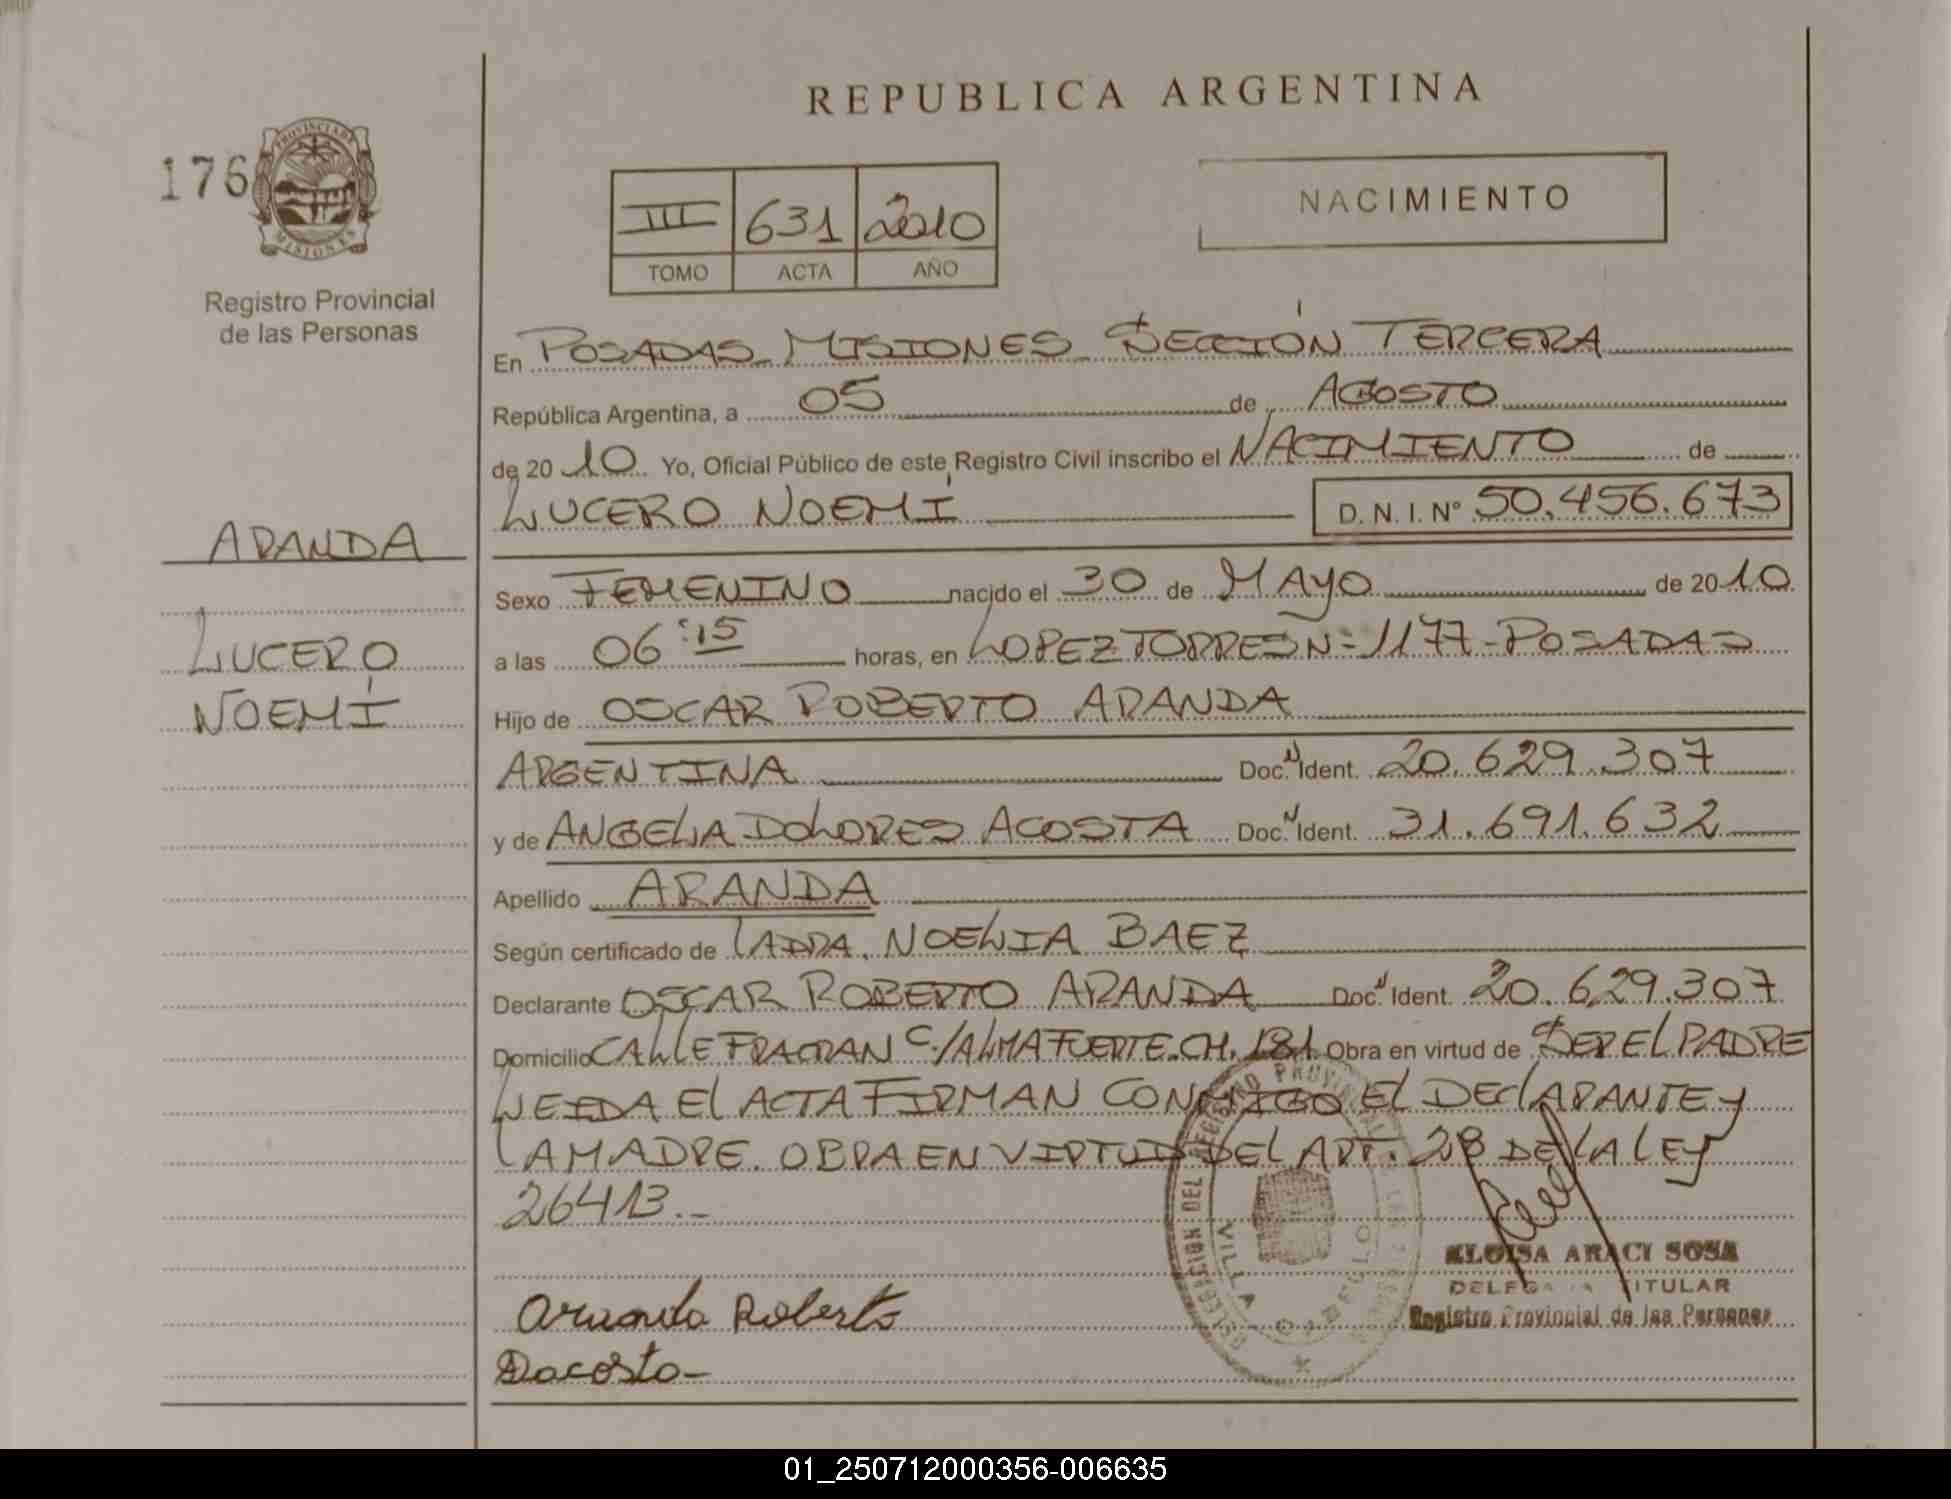 REPUBLICA ARGENTINA
176
PROVINCIA DE
MISIONES
Registro Provincial
de las Personas
NACIMIENTO
III 631 2010
TOMO ACTA AÑO
En POSADAS MISIONES SECCIÓN TERCERA
República Argentina, a 05 de AGOSTO
de 2010 Yo, Oficial Público de este Registro Civil inscribo el NACIMIENTO de
LUCERO NOEMÍ D. N. I. Nº 50.456.673
ARANDA
LUCERO
NOEMÍ
Sexo FEMENINO nacido el 30 de MAYO de 2010
a las 06:15 horas, en LOPEZ TORRES Nº 1177 - POSADAS
Hijo de OSCAR ROBERTO ARANDA
ARGENTINA Doc. Ident. 20.629.307
y de ANGELIA DOLORES ACOSTA Doc. Ident. 31.691.632
Apellido ARANDA
Según certificado de LA DRA. NOELIA BAEZ
Declarante OSCAR ROBERTO ARANDA Doc. Ident. 20.629.307
Domicilio CALLE FRACRAN C/ALMAFUERTE. CH. 181 Obra en virtud de SER EL PADRE
LEIDA EL ACTA FIRMAN CONMIGO EL DECLARANTE Y
LA MADRE. OBRA EN VIRTUD DEL ART. 28 DE LA LEY
26413.-
ELOISA ARACI SOSA
DELEGADA TITULAR
Registro Provincial de las Personas
Aranda Roberto
Dacosta-
VILLA CABELLO
01_250712000356-006635